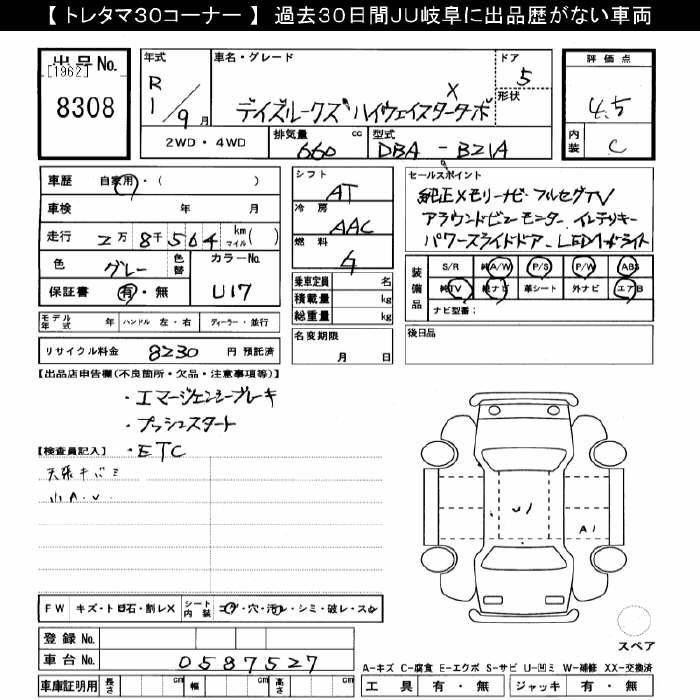 【 トレタマ３０コーナー 】 過去３０日間ＪＵ岐阜に出品歴がない車両
出品No.
[1962]
8308
年式
R 1/9月
車名・グレード
X
デイズルークス ハイウェイスターターボ
ドア
5
形状
評価点
4.5
内装
C
2WD・4WD
排気量 cc
660
型式
DBA - B21A
車歴 自家用・( )
車検 年 月
走行 2万8千564 km マイル( )
色 グレー
色替
カラーNo.
U17
保証書 有・無
モデル年式 年 ハンドル 左・右 ディーラー・並行
リサイクル料金 8230 円 預託済
シフト
AT
冷房
AAC
燃料
G
乗車定員 名
積載量 kg
総重量 kg
名変期限
月 日
セールスポイント
純正メモリーナビ フルセグTV
アラウンドビューモニター インテリキー
パワースライドドア LEDヘッドライト
装備品
S/R 純A/W P/S P/W ABS
純TV 純ナビ 革シート 外ナビ エアB
ナビ型番:
後日品
【出品店申告欄(不良箇所・欠品・注意事項等)】
・エマージェンシーブレーキ
・プッシュスタート
・ETC
【検査員記入】
天張キバミ
小A.U.
U1
A1
FW キズ・トビ石・割レX
シート内装 コゲ・穴・汚レ・シミ・破レ・スレ
登録 No.
車台 No. 0587527
車庫証明用 長さ cm 幅 cm 高さ cm
スペア
A―キズ C―腐食 E―エクボ S―サビ U―凹ミ W―補修 XX―交換済
工具 有・無 ジャッキ 有・無